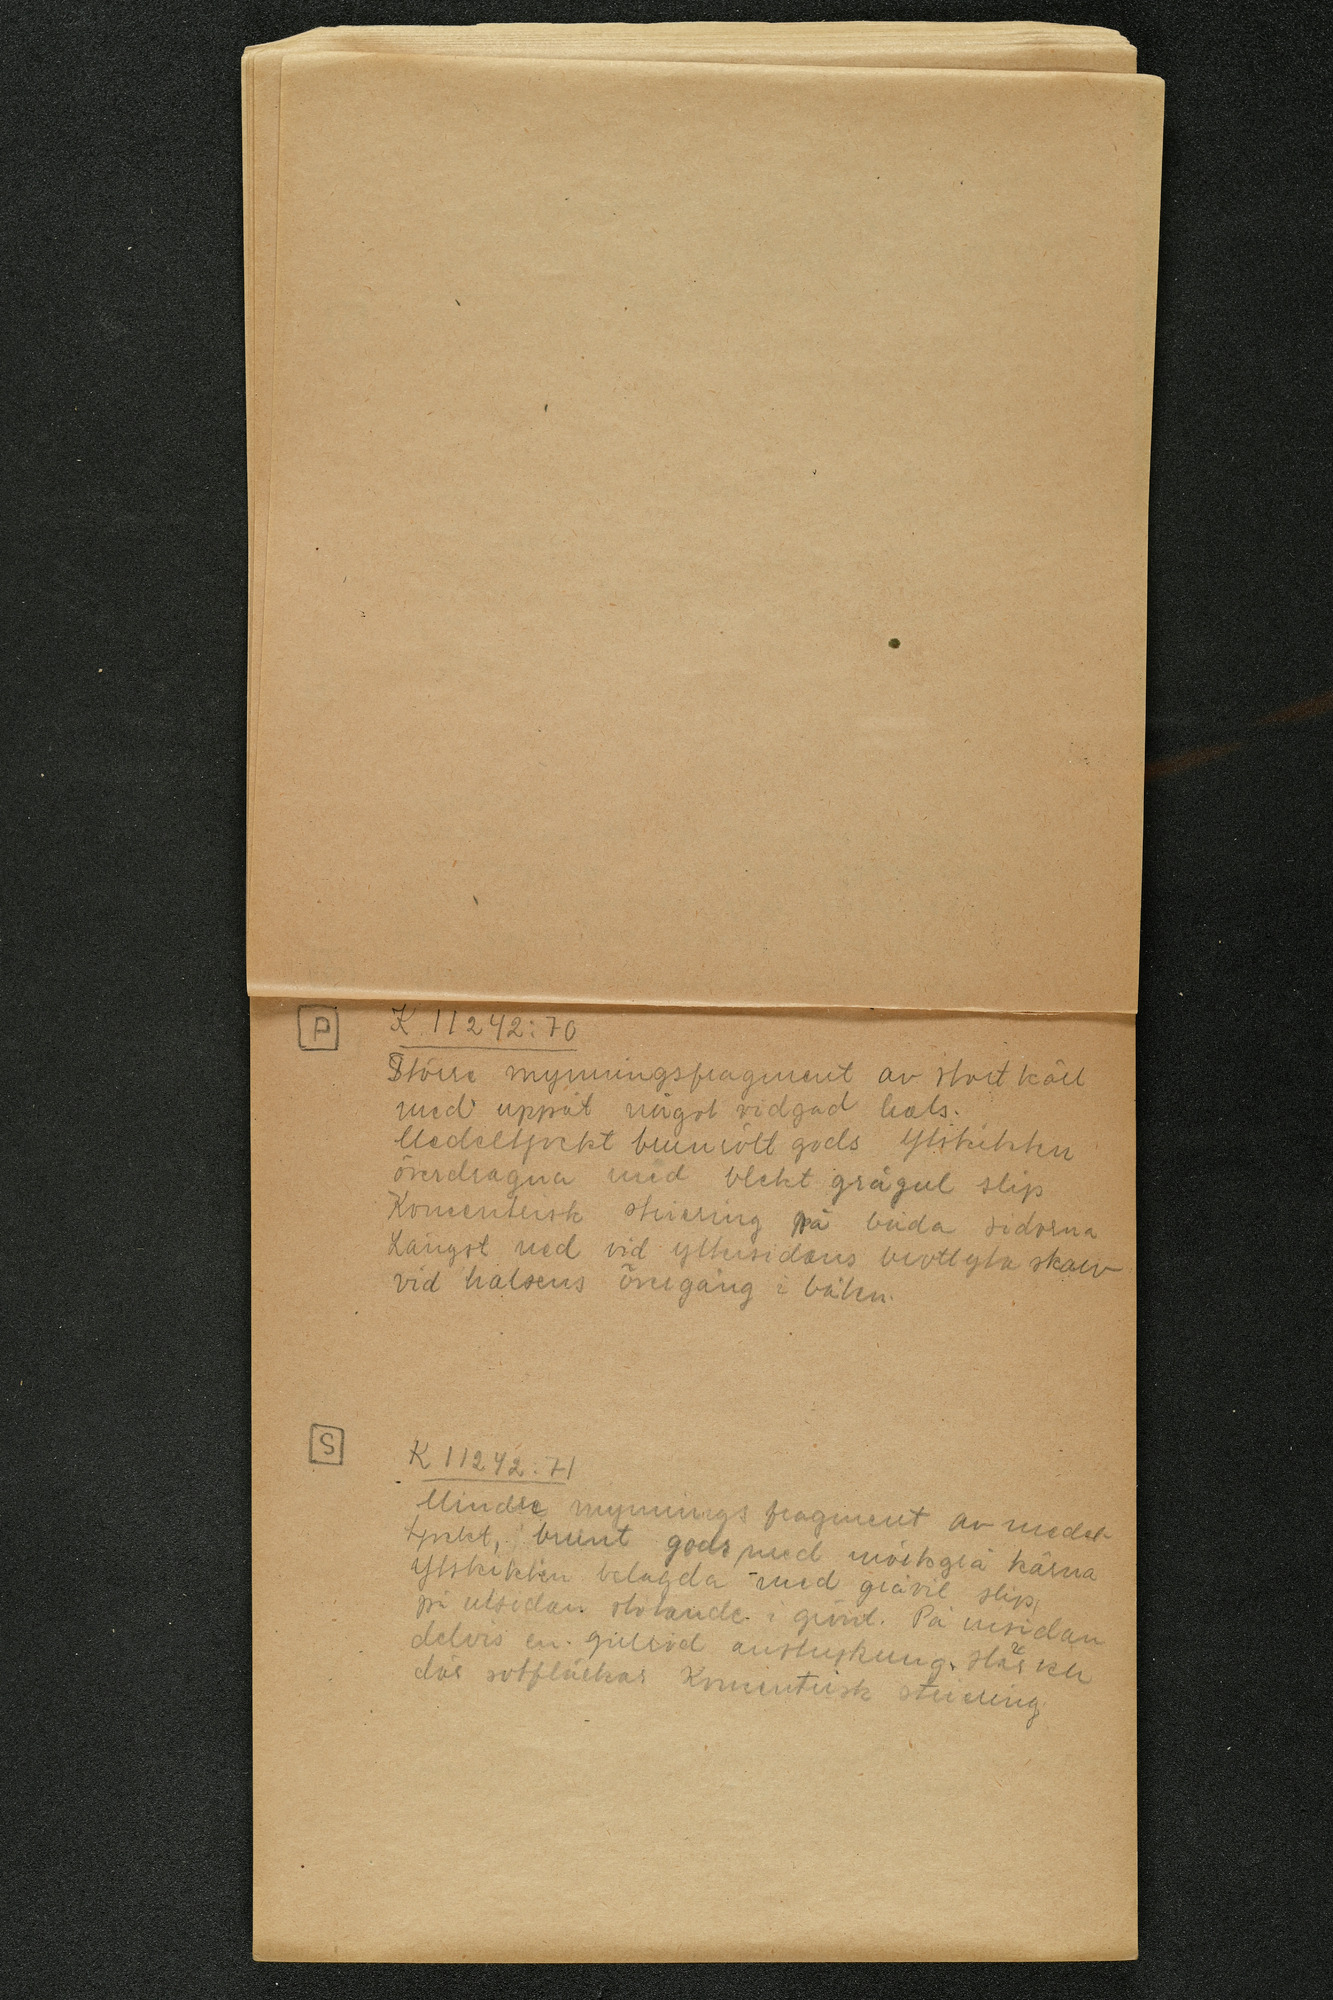 P
K 11242:70
Större mynningsfragment av stort kärl
med uppåt något vidgad hals.
Medeltjockt brunrött gods Ytskikten
överdragna med blekt grågul slip
Koncentrisk striering på båda sidorna
Längst ned vid yttersidans brottyta skarv
vid halsens övergång i buken.
S
K 11242:71
Mindre mynningsfragment av medel-
tjockt, brunt gods med mörkgrå kärna
Ytskikten belagda med gråvit slip,
på utsidan stötande i grönt. På insidan
delvis en gulröd anstrykning.
där sotfläckar Koncentrisk striering